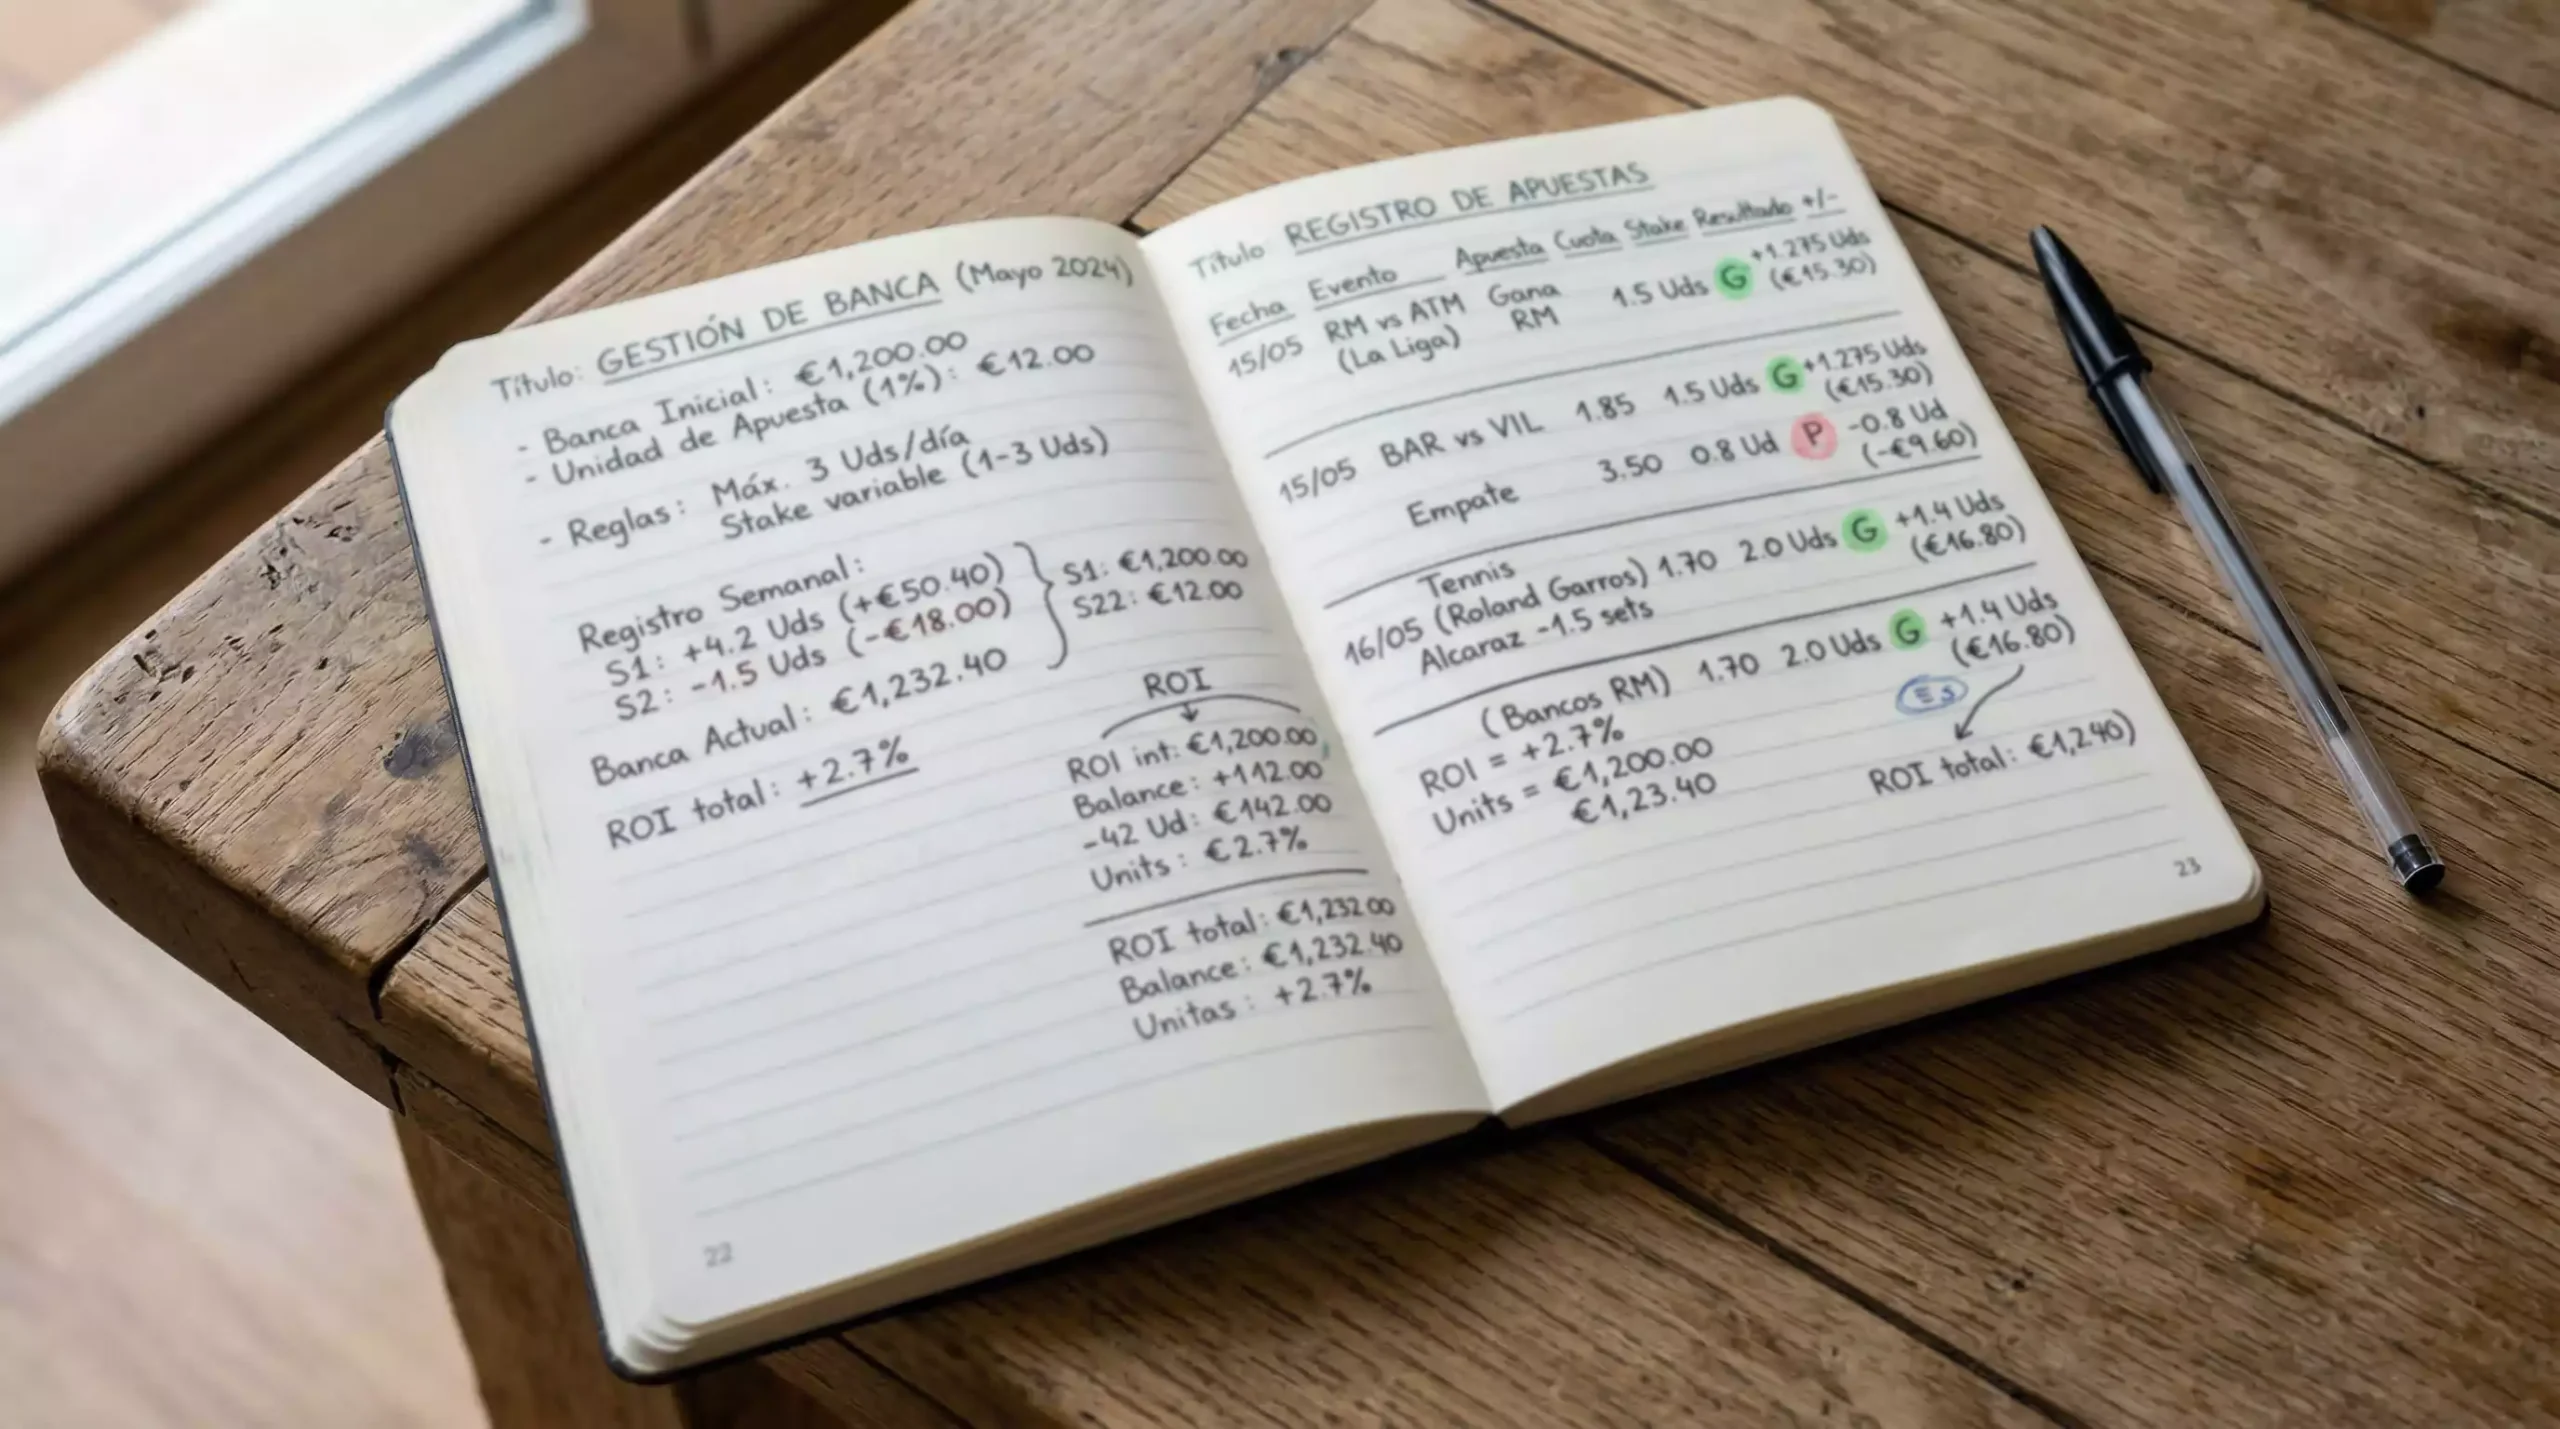 Título: GESTIÓN DE BANCA (Mayo 2024)
- Banca Inicial: €1,200.00
- Unidad de Apuesta (1%): €12.00
- Reglas: Máx. 3 Uds/día
Stake variable (1-3 Uds)
Registro Semanal:
S1: +4.2 Uds (+€50.40)
S2: -1.5 Uds (-€18.00)
S1: €1,200.00
S22: €12.00
Banca Actual: €1,232.40
ROI total: +2.7%
ROI
ROI int: €1,200.00
Balance: +112.00
-42 Ud: €142.00
Units: €2.7%
ROI total: €1,232.00
Balance: €1,232.40
Unitas: +2.7%
22
Título REGISTRO DE APUESTAS
Fecha Evento Apuesta Cuota Stake Resultado +/-
15/05 RM vs ATM Gana 1.5 Uds G +1.275 Uds
(La Liga) RM (€15.30)
15/05 BAR vs VIL 1.85 1.5 Uds G +1.275 Uds
(€15.30)
Empate 3.50 0.8 Ud P -0.8 Ud
(-€9.60)
Tennis
16/05 (Roland Garros) 1.70 2.0 Uds G +1.4 Uds
Alcaraz -1.5 sets (€16.80)
(Bancos RM) 1.70 2.0 Uds G +1.4 Uds
(€16.80)
ROI = +2.7%
Units = €1,200.00
€1,23.40
ROI total: €1,240)
23